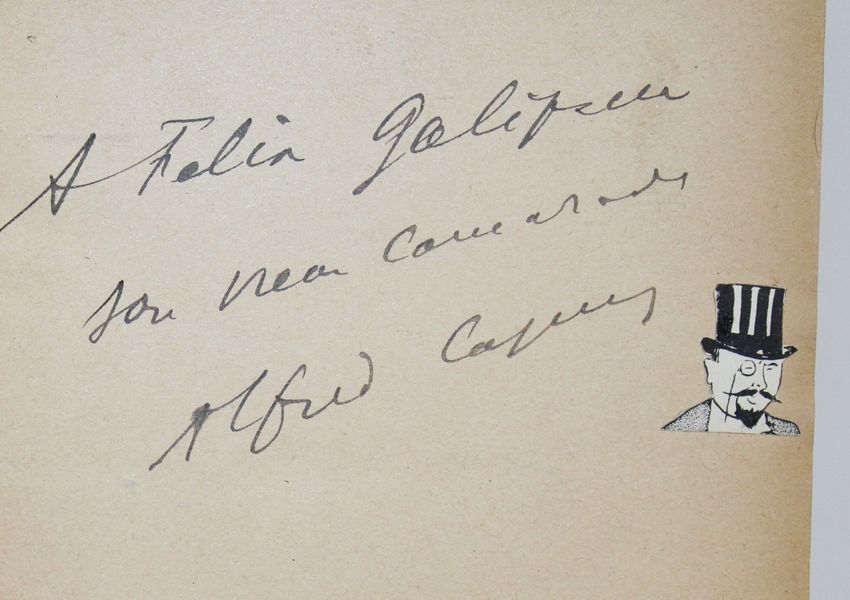 A Felix Galipaux
son vieux camarade
Alfred Capus